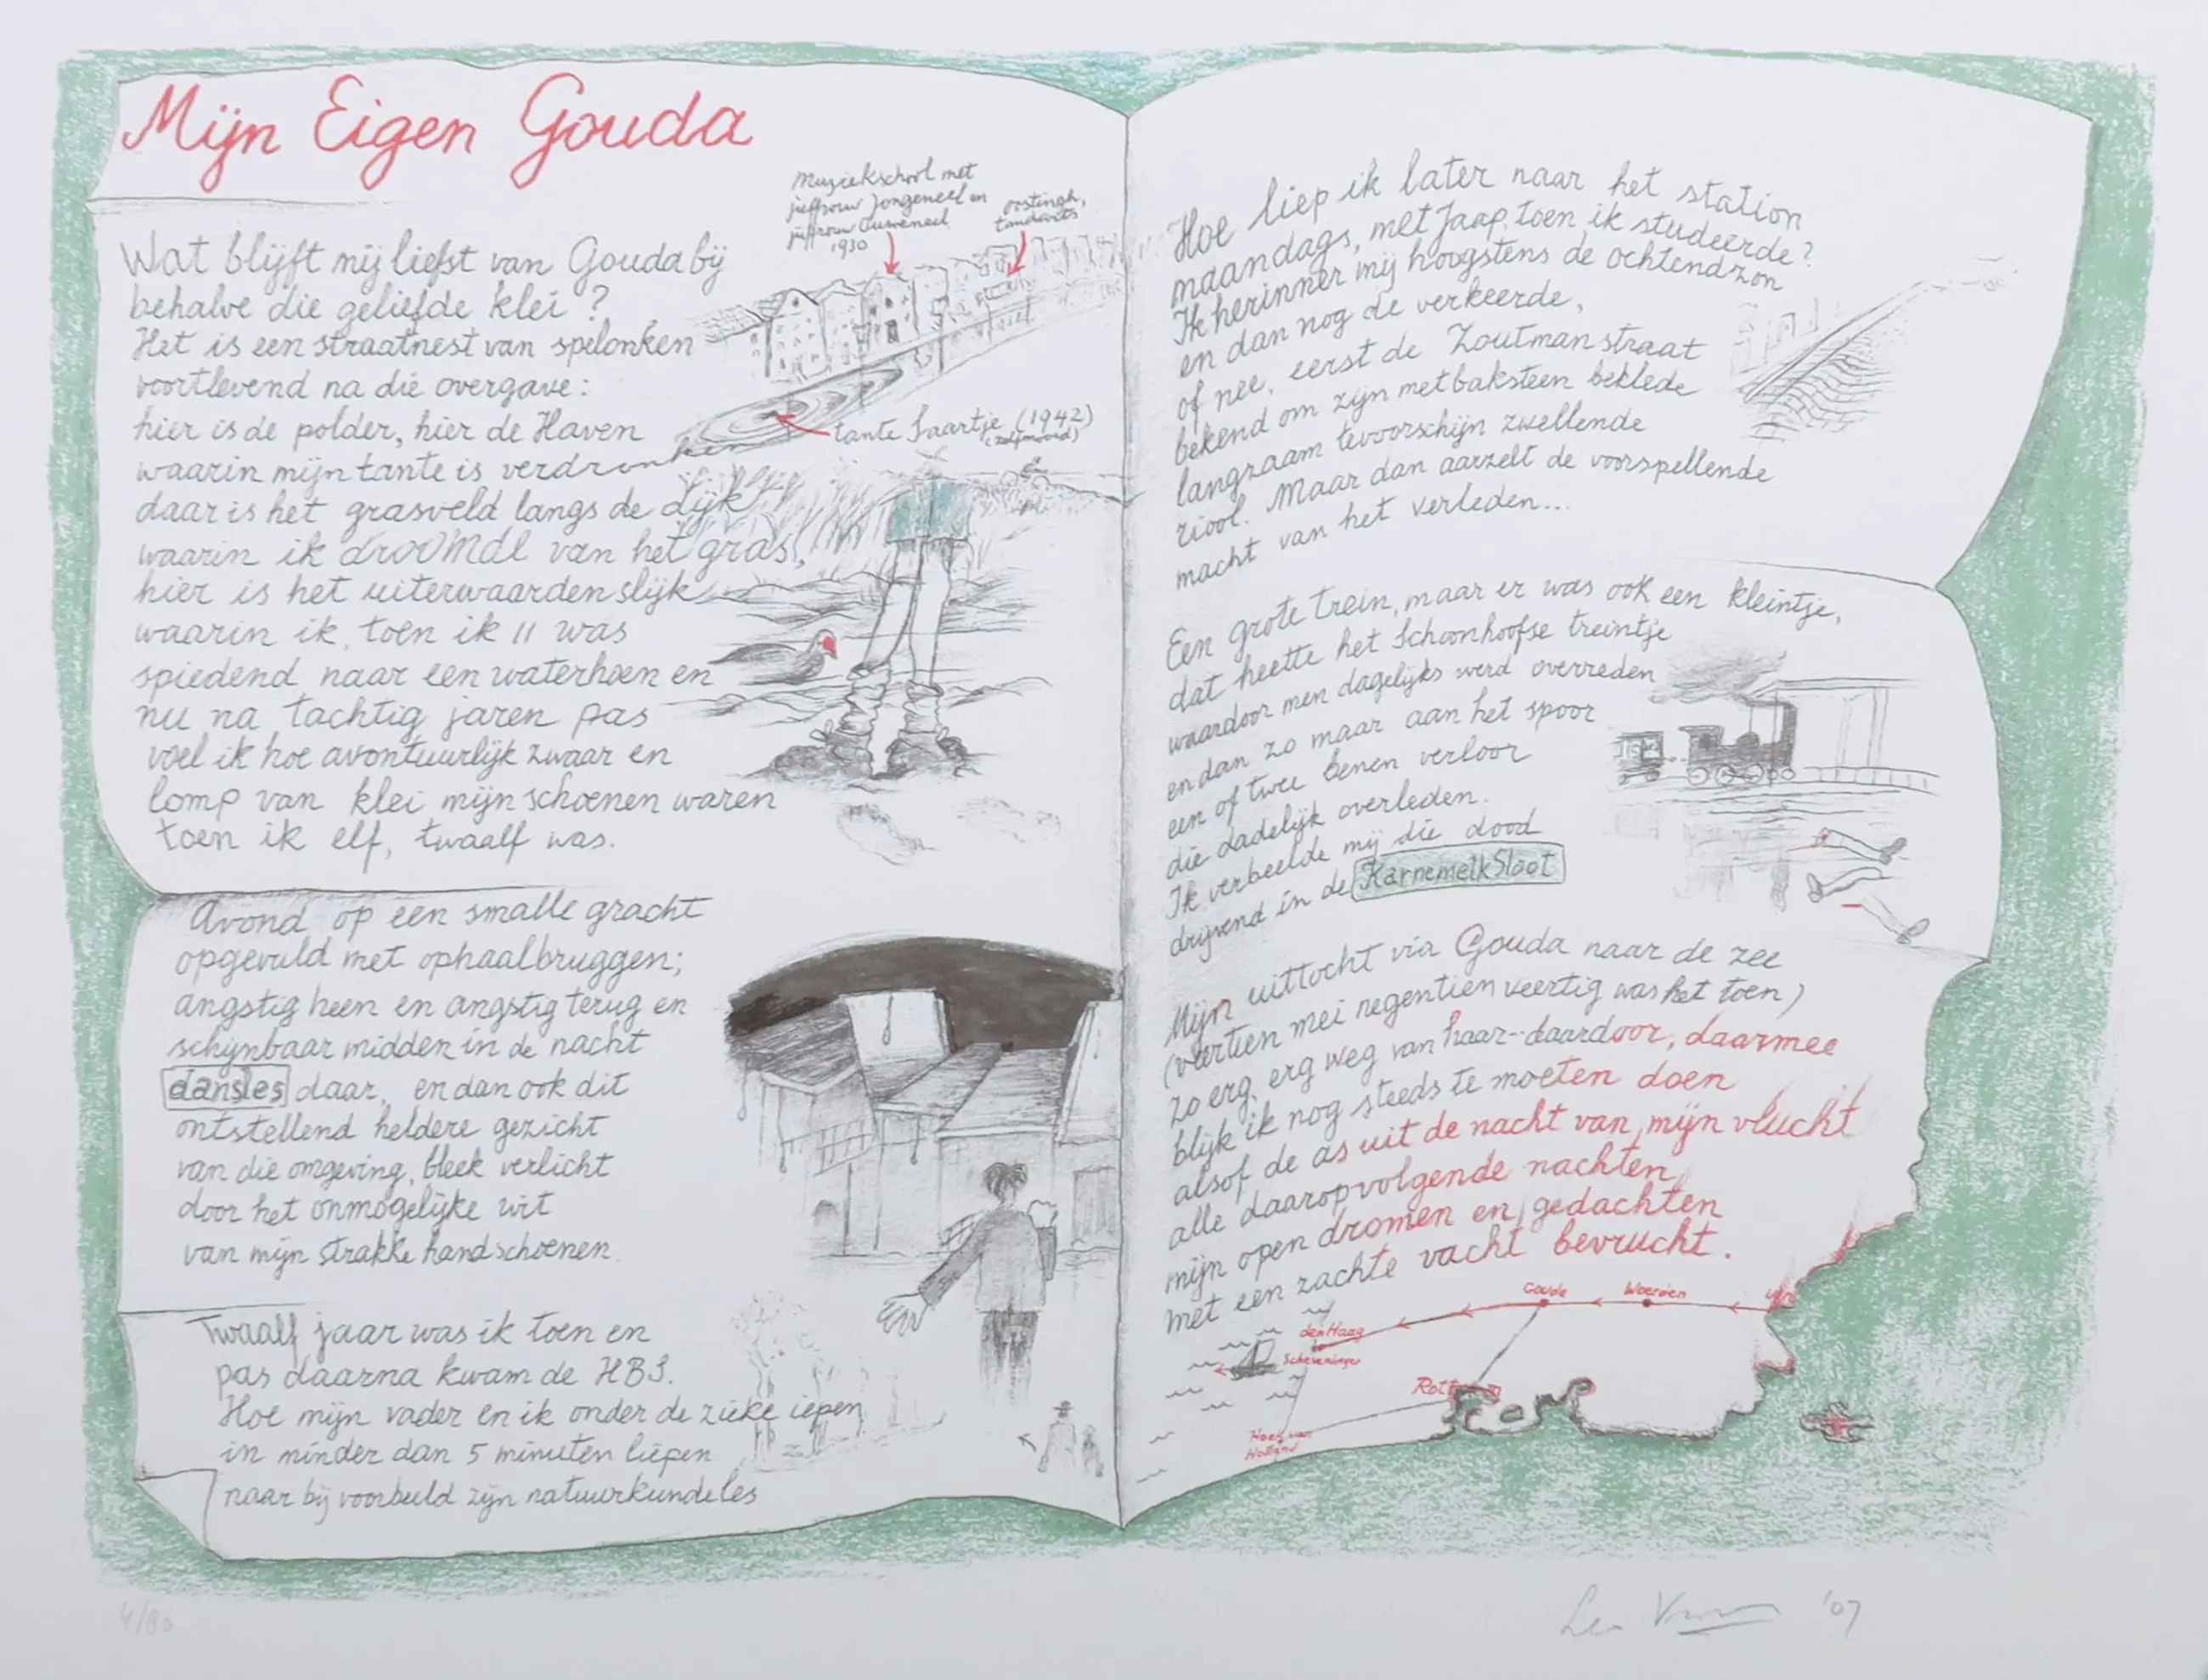 Mijn Eigen Gouda
Muziekschool met
juffrouw Jongeneel en
juffrouw Ouweneel
1930
Oostingh,
tandarts
Wat blijft mij liefst van Gouda bij
behalve die geliefde klei?
Het is een straatnest van spelonken
voortlevend na die overgave:
hier is de polder, hier de Haven
waarin mijn tante is verdronken
tante Saartje (1942)
(zelfmoord)
daar is het grasveld langs de dijk
waarin ik droomde van het gras,
hier is het uiterwaardenslijk
waarin ik, toen ik 11 was
spiedend naar een waterhoen en
nu na tachtig jaren pas
voel ik hoe avontuurlijk zwaar en
lomp van klei mijn schoenen waren
toen ik elf, twaalf was.
Avond op een smalle gracht
opgevuld met ophaalbruggen;
angstig heen en angstig terug en
schijnbaar midden in de nacht
dansles daar, en dan ook dit
ontstellend heldere gezicht
van die omgeving, bleek verlicht
door het onmogelijke wit
van mijn strakke handschoenen.
Twaalf jaar was ik toen en
pas daarna kwam de HBS.
Hoe mijn vader en ik onder de zieke iepen
in minder dan 5 minuten liepen
naar bij voorbeeld zijn natuurkundeles
Hoe liep ik later naar het station
maandags, met Jaap, toen ik studeerde?
Ik herinner mij hoogstens de ochtendzon
en dan nog de verkeerde,
of nee, eerst de Zoutmanstraat
bekend om zijn met baksteen beklede
langzaam tevoorschijn zwellende
riool. Maar dan aarzelt de voorspellende
macht van het verleden...
Een grote trein, maar er was ook een kleintje,
dat heette het Schoonhoofse treintje
waardoor men dagelijks werd overreden
en dan zo maar aan het spoor
een of twee benen verloor
die dadelijk overleden.
Ik verbeelde mij die dood
drijvend in de KarnemelkSloot
Mijn uittocht via Gouda naar de zee
(veertien mei negentien veertig was het toen)
zo erg, erg weg van haar--daardoor, daarmee
blijk ik nog steeds te moeten doen
alsof de as uit de nacht van mijn vlucht
alle daaropvolgende nachten
mijn open dromen en gedachten
met een zachte vacht bevrucht.
Gouda
Woerden
den Haag
Scheveningen
Hoek van
Holland
4/80
Leo Vroman '07